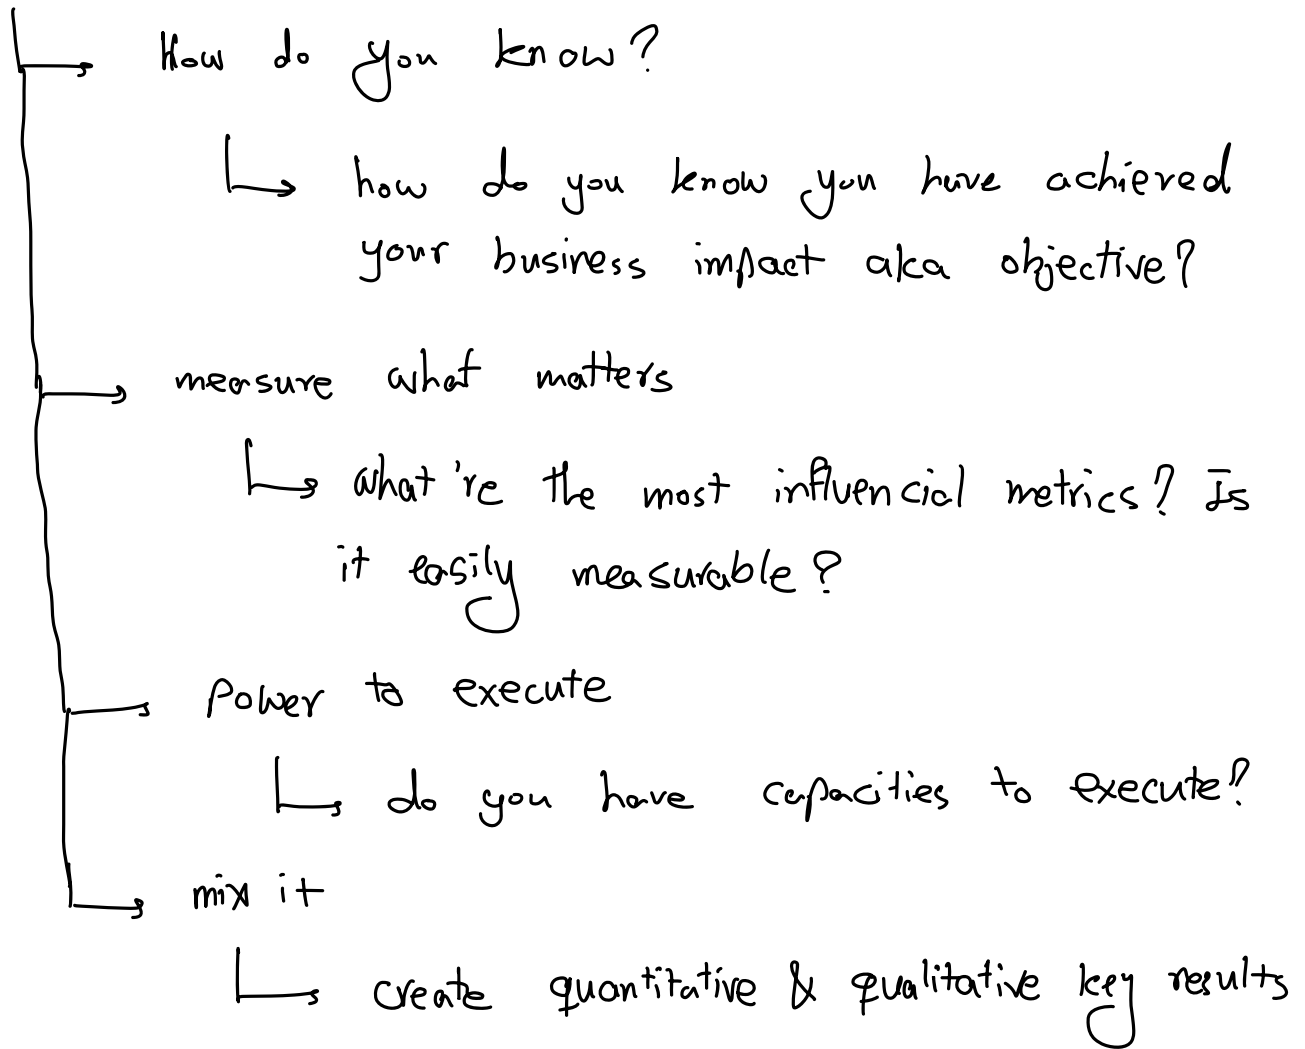 How do you know?
how do you know you have achieved
your business impact aka objective?
measure what matters
what're the most influencial metrics? Is
it easily measurable?
Power to execute
do you have capacities to execute?
mix it
create quantitative & qualitative key results